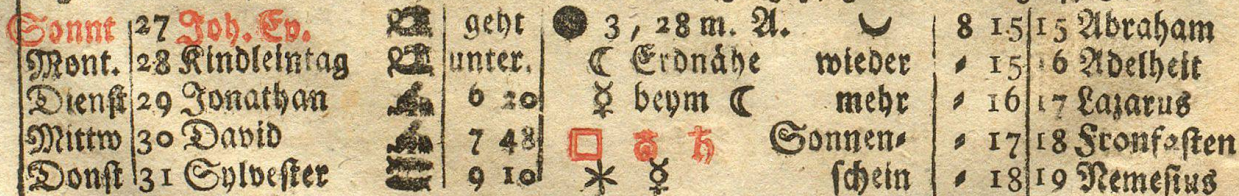 Sonnt 27 Joh. Ev. geht ● 3, 28 m. A. ◡ 8 15 15 Abraham
Mont. 28 Kindleintag unter. ☾ Erdnähe wieder ⸗ 15 16 Adelheit
Dienst 29 Jonathan 6 20 ☿ beym ☾ mehr ⸗ 16 17 Lazarus
Mittw 30 David 7 48 □ ♄ Sonnen⸗ ⸗ 17 18 Fronfasten
Donst 31 Sylvester 9 10 ⚹ ☿ schein ⸗ 18 19 Nemesius